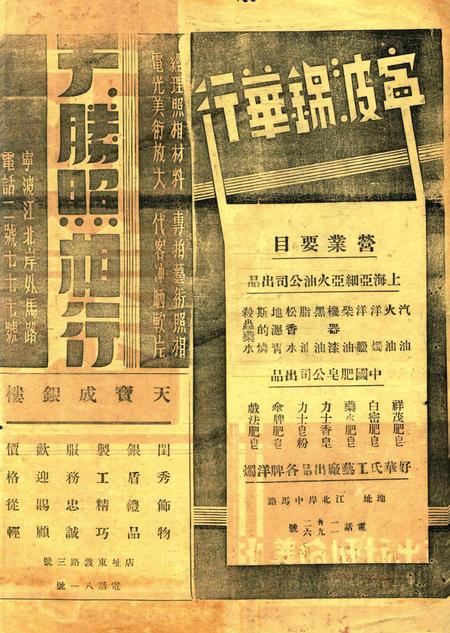 寧波錦華行
營業要目
上海亞細亞火油公司出品
汽油
火油
洋燭
洋蠟
柴油
機器漆
黑油
脂油
松香水
地瀝青
斯的燐
殺蟲藥水
中國肥皂公司出品
祥茂肥皂
白密肥皂
藥水肥皂
力士香皂
力士皂粉
傘牌肥皂
戲法肥皂
好華氏工藝廠出品各牌洋燭
地址 江北岸中馬路
電話
號
經理照相材料 專拍藝術照相
電光美術放大 代客冲晒軟片
勝照相行
寧波江北岸外馬路
電話二號七十七號
天寶成銀樓
閨秀飾物
銀盾禮品
製工精巧
服務忠誠
歡迎賜顧
價格從輕
店址東渡路三號
電話八一號